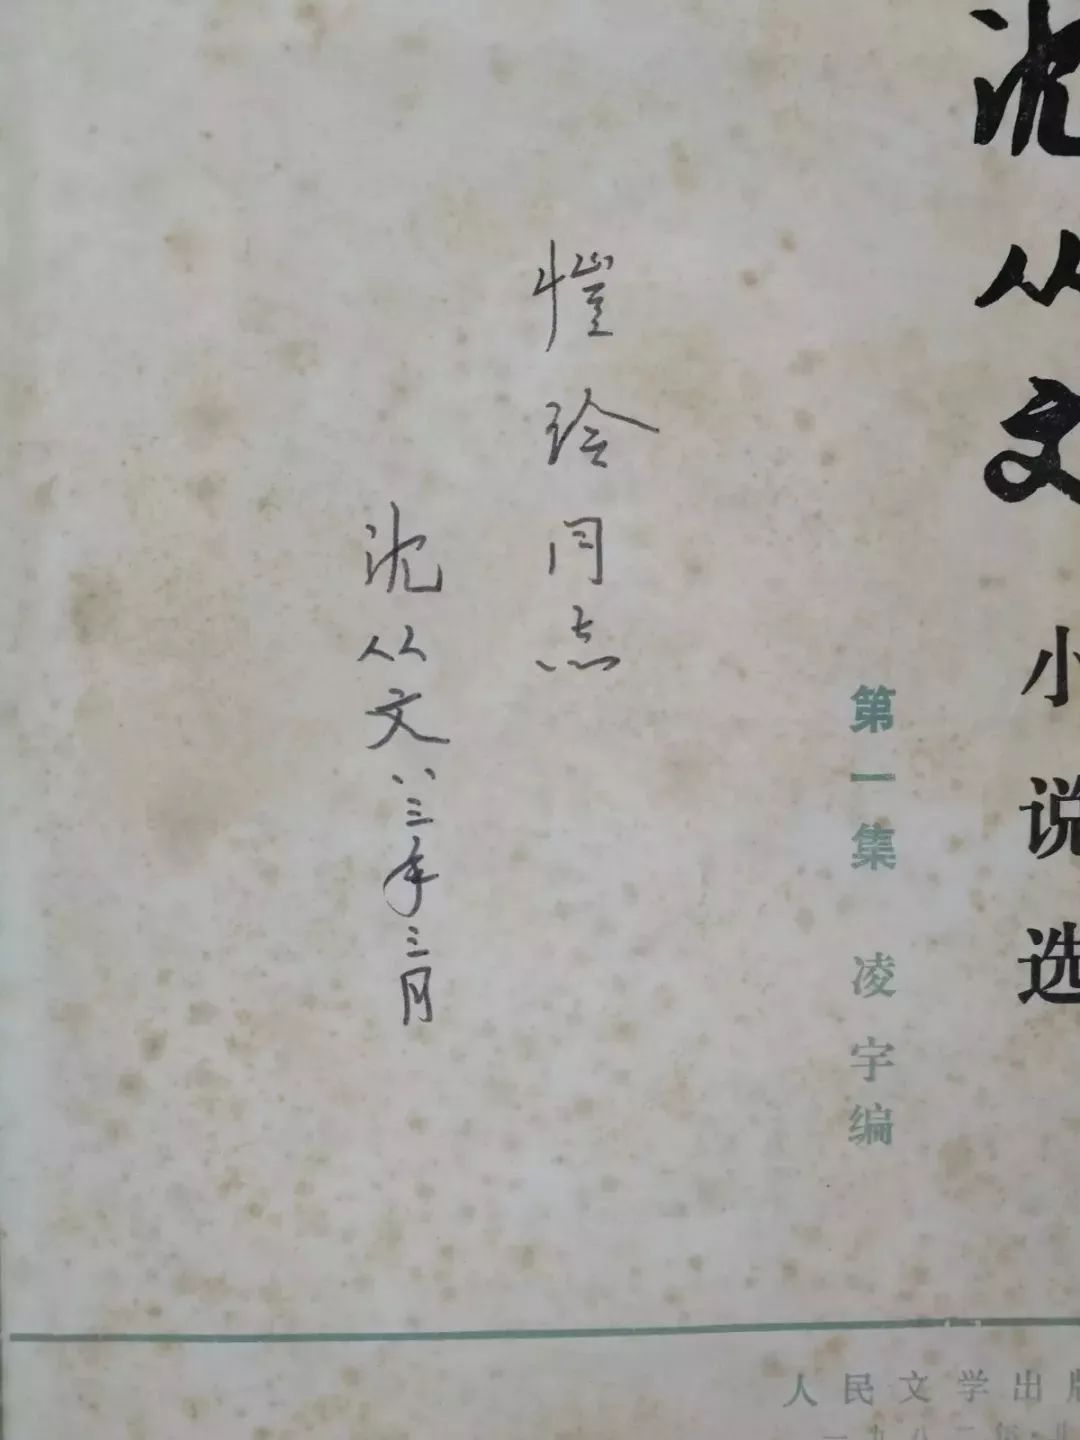 沈从文
小说选
第一集 凌宇编
恺玲同志
沈从文 八三年三月
人民文学出版
一九八二年·北